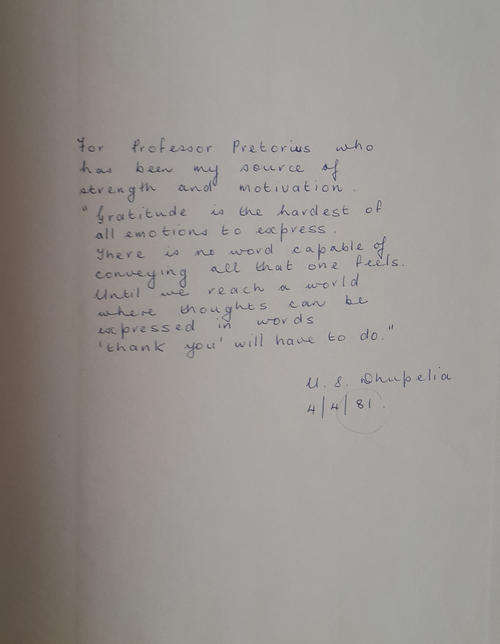 For Professor Pretorius who
has been my source of
strength and motivation.
"Gratitude is the hardest of
all emotions to express.
There is no word capable of
conveying all that one feels.
Until we reach a world
where thoughts can be
expressed in words
'thank you' will have to do."
U. S. Dhupelia
4/4/81.